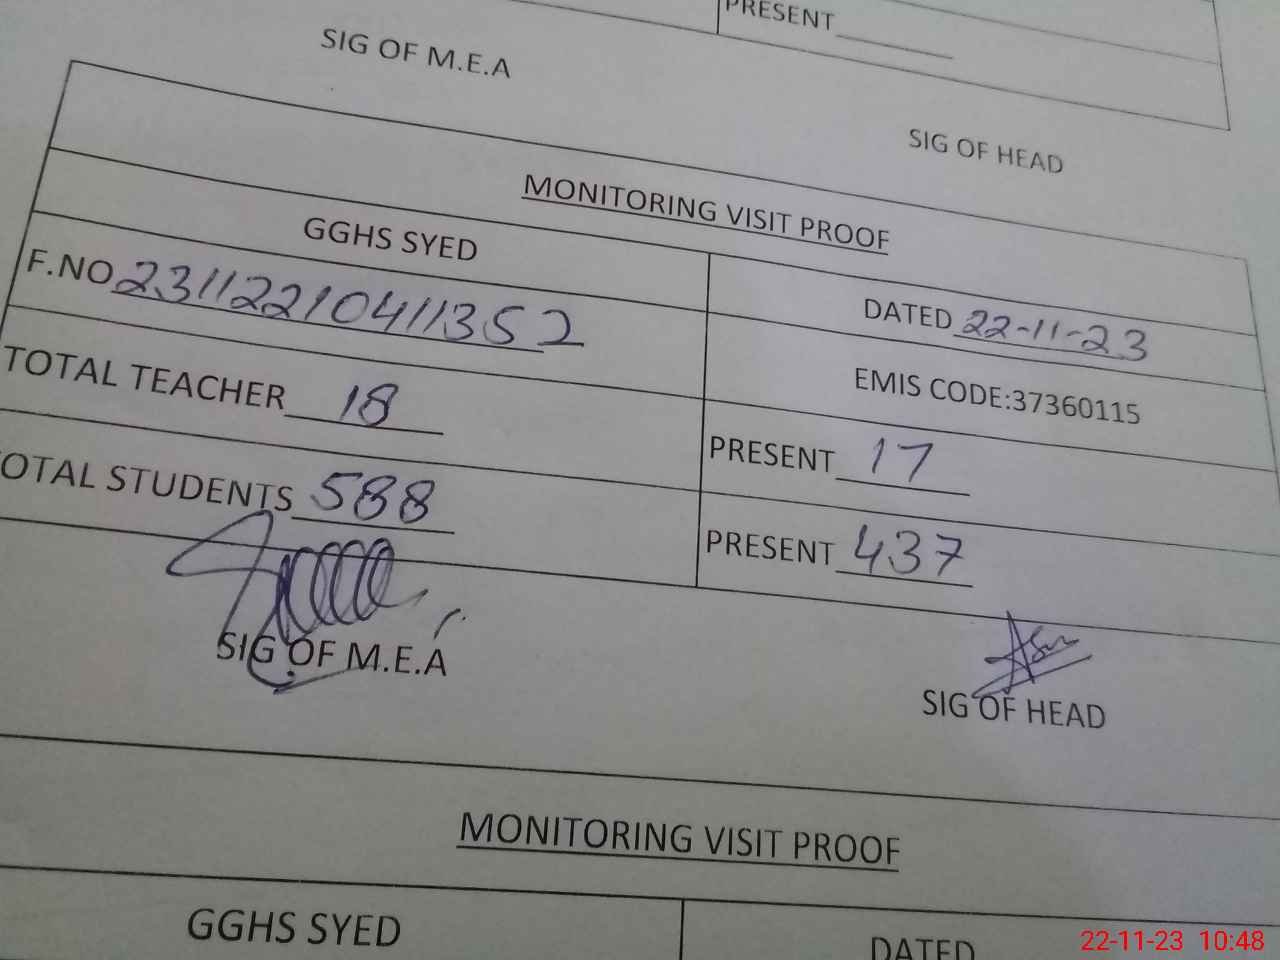 PRESENT
SIG OF M.E.A
SIG OF HEAD
MONITORING VISIT PROOF
GGHS SYED
DATED 22-11-23
F.NO 23112210411352
EMIS CODE:37360115
TOTAL TEACHER 18
PRESENT 17
OTAL STUDENTS 588
PRESENT 437
SIG OF M.E.A
SIG OF HEAD
MONITORING VISIT PROOF
GGHS SYED
DATED
22-11-23 10:48